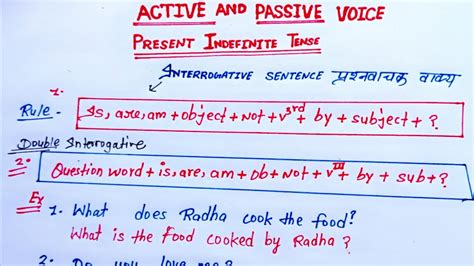 ACTIVE AND PASSIVE VOICE
PRESENT INDEFINITE TENSE
INTERROGATIVE SENTENCE प्रश्नवाचक वाक्य
1.
Rule - Is, are, am + object + Not + v3rd + by + subject + ?
Double Interrogative
2. Question word + is, are, am + Ob + Not + vIII + by + sub + ?
Ex
1. What does Radha cook the food?
What is the food cooked by Radha ?
2. Do you love me?